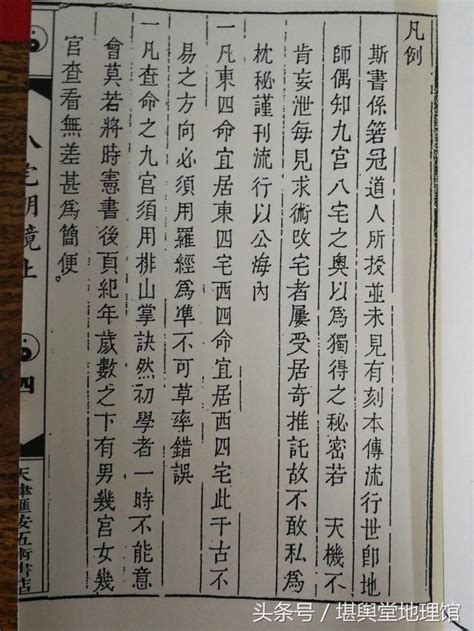 凡例
斯書係箬冠道人所授並未見有刻本傳流行世卽地
師偶知九宮八宅之奧以爲獨得之秘密若 天機不
肯妄泄每見求術改宅者屢受居奇推託故不敢私爲
枕秘謹刊流行以公海內
一凡東四命宜居東四宅西四命宜居西四宅此千古不
易之方向必須用羅經爲凖不可草率錯誤
一凡查命之九宮須用排山掌訣然初學者一時不能意
會莫若將時憲書後頁紀年歲數之下有男幾宮女幾
宮查看無差甚爲簡便。
八宅明鏡上
四
天津匯安五術書店
头条号/堪舆堂地理馆